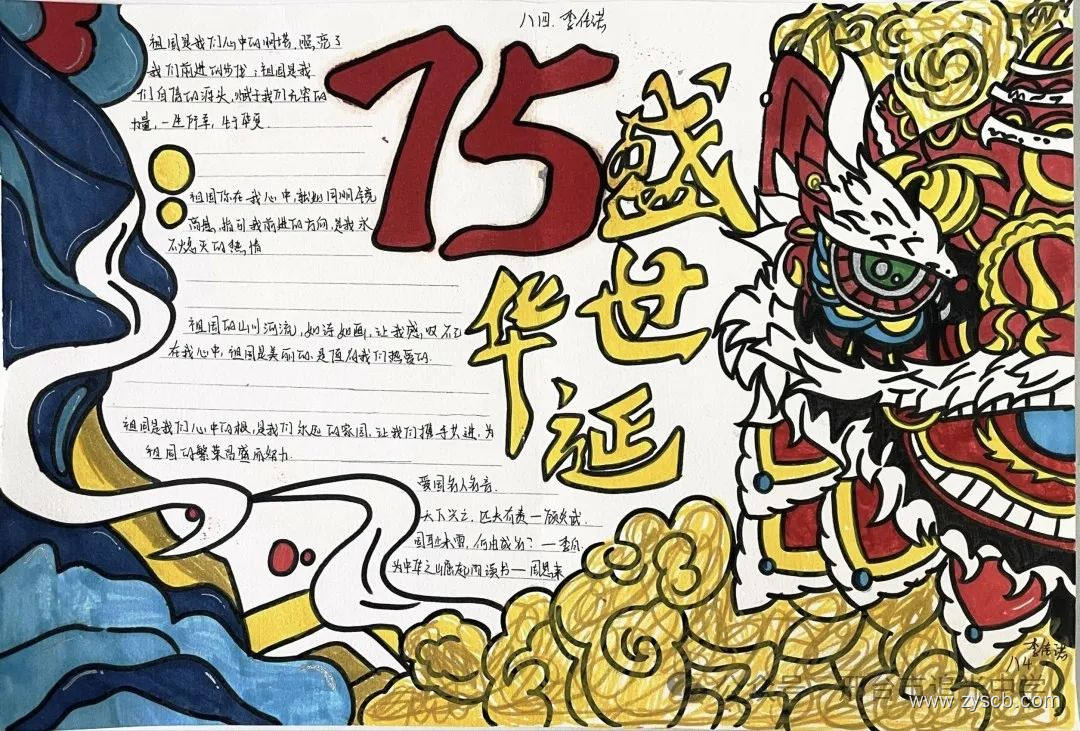 八四.李佳诺
祖国是我们心中的灯塔,照亮了
我们前进的步伐;祖国是我
们自信的源头,赋予我们无穷的
力量,一生所幸,生于华夏.
75
盛世华延
祖国你在我心中,就如同明星
高悬,指引我前进的方向,是我永
不熄灭的热情
祖国的山川河流,如诗如画,让我感叹不已
在我心中,祖国是美丽的.是值得我们热爱的.
祖国是我们心中的根,是我们永远的家园,让我们携手共进,为
祖国的繁荣昌盛而努力.
爱国名人名言.
天下兴亡,匹夫有责一顾炎武.
国耻未雪,何由成名?一李白.
为中华之崛起而读书一周恩来
李佳诺
八4
www.zyscb.com